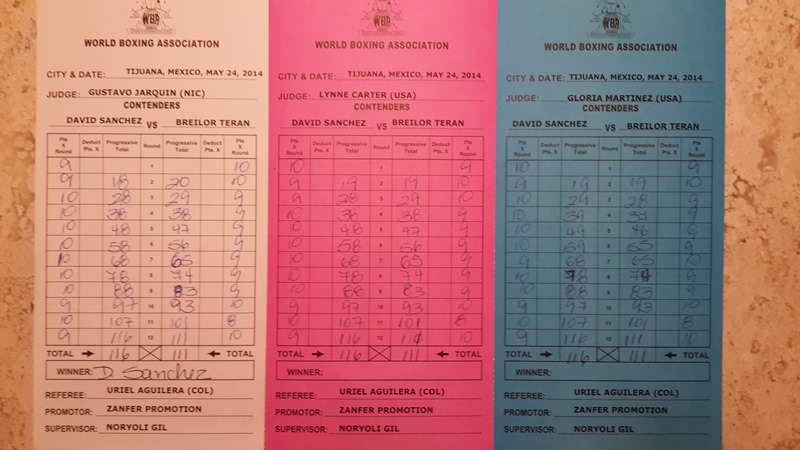 WBA
WORLD BOXING ASSOCIATION
CITY & DATE: TIJUANA, MEXICO, MAY 24, 2014
JUDGE: GUSTAVO JARQUIN (NIC)
CONTENDERS
DAVID SANCHEZ VS BREILOR TERAN
Pts X Round Deduct Pts. X Progressive Total Round Progressive Total Deduct X Pts X Round
9 1 10
9 18 2 20 10
10 28 3 29 9
10 38 4 38 9
10 48 5 47 9
10 58 6 56 9
10 68 7 65 9
10 78 8 74 9
10 88 9 83 9
9 97 10 93 10
10 107 11 101 8
9 116 12 111 10
TOTAL 116 111 TOTAL
WINNER: D. Sanchez
REFEREE: URIEL AGUILERA (COL)
PROMOTOR: ZANFER PROMOTION
SUPERVISOR: NORYOLI GIL
WBA
WORLD BOXING ASSOCIATION
CITY & DATE: TIJUANA, MEXICO, MAY 24, 2014
JUDGE: LYNNE CARTER (USA)
CONTENDERS
DAVID SANCHEZ VS BREILOR TERAN
Pts X Round Deduct Pts. X Progressive Total Round Progressive Total Deduct X Pts X Round
10 1 9
9 19 2 19 10
9 28 3 29 10
10 38 4 38 9
10 48 5 47 9
10 58 6 56 9
10 68 7 65 9
10 78 8 74 9
10 88 9 83 9
9 97 10 93 10
10 107 11 101 8
9 116 12 111 10
TOTAL 116 111 TOTAL
WINNER:
REFEREE: URIEL AGUILERA (COL)
PROMOTOR: ZANFER PROMOTION
SUPERVISOR: NORYOLI GIL
WBA
WORLD BOXING ASSOCIATION
CITY & DATE: TIJUANA, MEXICO, MAY 24, 2014
JUDGE: GLORIA MARTINEZ (USA)
CONTENDERS
DAVID SANCHEZ VS BREILOR TERAN
Pts X Round Deduct Pts. X Progressive Total Round Progressive Total Deduct X Pts X Round
10 1 9
9 19 2 19 10
10 29 3 28 9
10 39 4 37 9
10 49 5 46 9
10 59 6 55 9
9 68 7 65 10
10 78 8 74 9
10 88 9 83 9
9 97 10 93 10
10 107 11 101 8
9 116 12 111 10
TOTAL 116 111 TOTAL
WINNER:
REFEREE: URIEL AGUILERA (COL)
PROMOTOR: ZANFER PROMOTION
SUPERVISOR: NORYOLI GIL